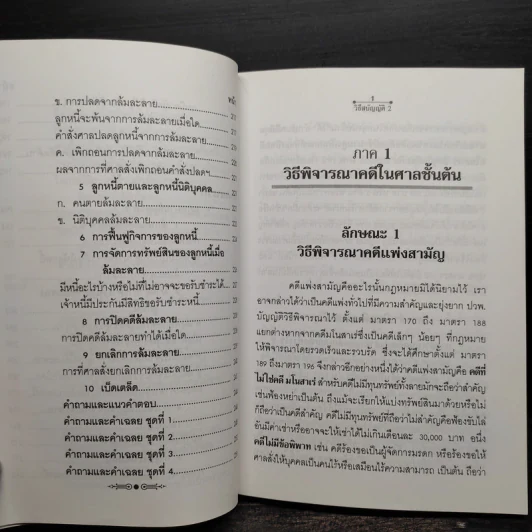 หน้า
ข. การปลดจากล้มละลาย
ลูกหนี้จะพ้นจากการล้มละลายเมื่อใด
คำสั่งศาลปลดลูกหนี้จากการล้มละลาย
ค. เพิกถอนการปลดจากล้มละลาย
ผลจากการที่ศาลสั่งเพิกถอนคำสั่งปลดฯ
5 ลูกหนี้ตายและลูกหนี้นิติบุคคล
ก. คนตายล้มละลาย
ข. นิติบุคคลล้มละลาย
6 การฟื้นฟูกิจการของลูกหนี้
7 การจัดการทรัพย์สินของลูกหนี้เมื่อ
ล้มละลาย
มีหนี้อะไรบ้างหรือไม่ที่ไม่อาจจะขอรับชำระได้
เจ้าหนี้มีประกันมีสิทธิขอรับชำระหนี้
8 การปิดคดีล้มละลาย
การปิดคดีล้มละลายทำได้เมื่อใด
9 ยกเลิกการล้มละลาย
การที่ศาลสั่งยกเลิกการล้มละลาย
10 เบ็ดเตล็ด
คำถามและแนวคำตอบ
คำถามและคำเฉลย ชุดที่ 1
คำถามและคำเฉลย ชุดที่ 2
คำถามและคำเฉลย ชุดที่ 3
คำถามและคำเฉลย ชุดที่ 4
1
วิธีสบัญญัติ 2
ภาค 1
วิธีพิจารณาคดีในศาลชั้นต้น
ลักษณะ 1
วิธีพิจารณาคดีแพ่งสามัญ
คดีแพ่งสามัญคืออะไรนั้นกฎหมายมิได้นิยามไว้ เรา
อาจกล่าวได้ว่าเป็นคดีแพ่งทั่วไปที่มีความสำคัญและยุ่งยาก ปวพ.
บัญญัติวิธีพิจารณาไว้ ตั้งแต่ มาตรา 170 ถึง มาตรา 188
แยกต่างหากจากคดีมโนสาเร่ซึ่งเป็นคดีเล็กๆ น้อยๆ ที่กฎหมาย
ให้พิจารณาโดยรวดเร็วและรวบรัด ซึ่งจะได้ศึกษาตั้งแต่ มาตรา
189 ถึงมาตรา 196 จึงกล่าวอีกอย่างหนึ่งได้ว่าคดีแพ่งสามัญคือ คดีที่
ไม่ใช่คดี มโนสาเร่ สำหรับคดีไม่มีทุนทรัพย์ทั้งลายมักจะถือว่าสำคัญ
เช่นฟ้องหย่าเป็นต้น ถึงแม้จะเรียกให้แบ่งทรัพย์สินมาด้วยหรือไม่
ก็ถือว่าเป็นคดีสำคัญ คดีไม่มีทุนทรัพย์ที่ถือว่าไม่สำคัญคือฟ้องขับไล่
อันมีค่าเช่าหรืออาจจะให้เช่าได้ไม่เกินเดือนละ 30,000 บาท อนึ่ง
คดีไม่มีข้อพิพาท เช่น คดีร้องขอเป็นผู้จัดการมรดก หรือร้องขอให้
ศาลสั่งให้บุคคลเป็นคนไร้หรือเสมือนไร้ความสามารถ เป็นต้น ถือว่า